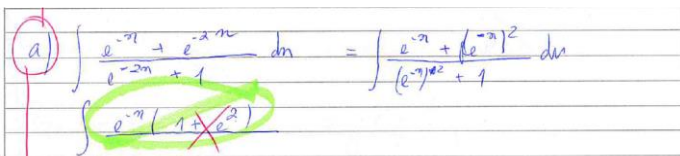 a) ∫ (e^{-x} + e^{-2x})/(e^{-2x} + 1) dx = ∫ (e^{-x} + (e^{-x})^2)/((e^{-x})^2 + 1) dx
∫ e^{-x}( 1 + e^2 )